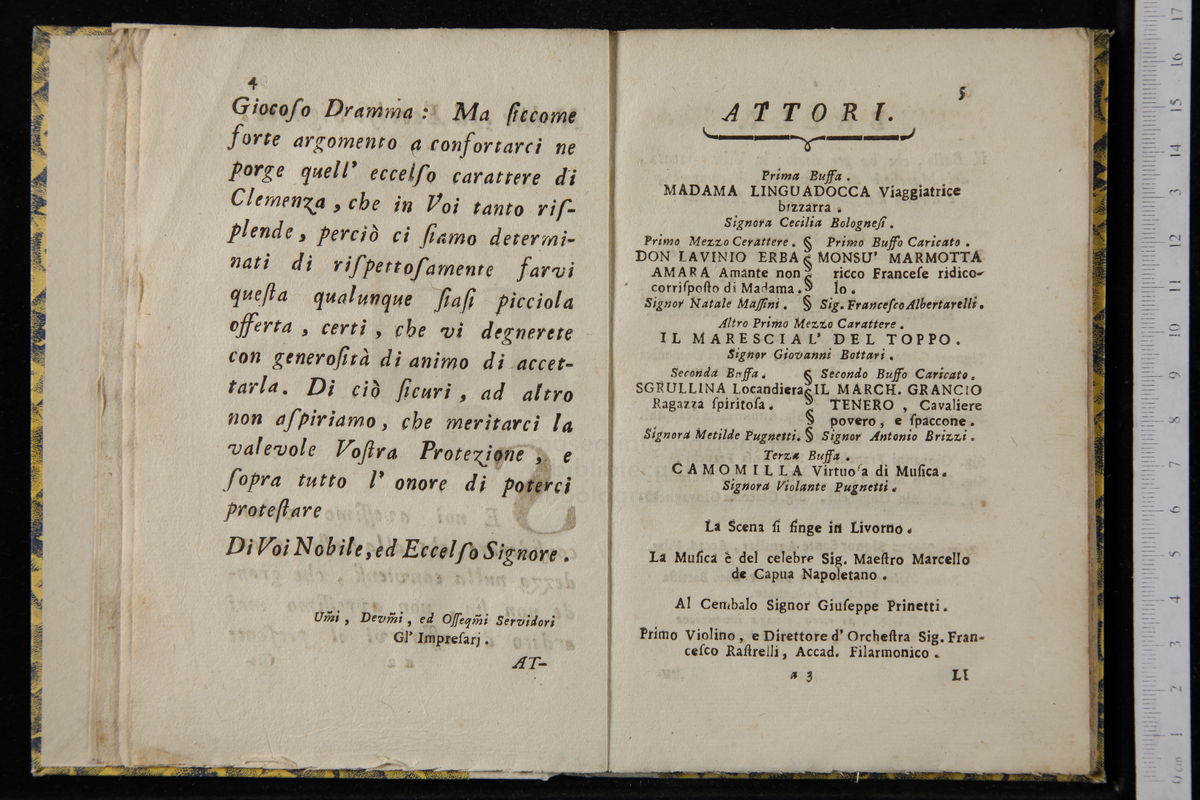 4
Giocoſo Dramma : Ma ſiccome
forte argomento a confortarci ne
porge quell' eccelſo carattere di
Clemenza , che in Voi tanto riſ-
plende , perciò ci ſiamo determi-
nati di riſpettoſamente farvi
queſta qualunque ſiaſi picciola
offerta , certi , che vi degnerete
con generoſità di animo di accet-
tarla . Di ciò ſicuri , ad altro
non aſpiriamo , che meritarci la
valevole Voſtra Protezione , e
ſopra tutto l' onore di poterci
proteſtare
Di Voi Nobile, ed Eccelſo Signore .
Um̃i , Devm̃i , ed Oſſeqm̃i Servidori
Gl' Impreſarj .
AT-
5
ATTORI.
Prima Buffa .
MADAMA LINGUADOCCA Viaggiatrice
bizzarra .
Signora Cecilia Bologneſi .
Primo Mezzo Cerattere . § Primo Buffo Caricato .
DON LAVINIO ERBA § MONSU' MARMOTTA
AMARA Amante non § ricco Franceſe ridico-
corriſpoſto di Madama . § lo .
Signor Natale Maſſini . § Sig. Franceſco Albertarelli .
Altro Primo Mezzo Carattere .
IL MARESCIAL' DEL TOPPO .
Signor Giovanni Bottari .
Seconda Buffa . § Secondo Buffo Caricato .
SGRULLINA Locandiera § IL MARCH. GRANCIO
Ragazza ſpiritoſa . § TENERO , Cavaliere
§ povero , e ſpaccone .
Signora Metilde Pugnetti . § Signor Antonio Brizzi .
Terza Buffa .
CAMOMILLA Virtuoſa di Muſica .
Signora Violante Pugnetti .
La Scena ſi finge in Livorno .
La Muſica è del celebre Sig. Maeſtro Marcello
de Capua Napoletano .
Al Cembalo Signor Giuſeppe Prinetti .
Primo Violino , e Direttore d' Orcheſtra Sig. Fran-
ceſco Raſtrelli , Accad. Filarmonico .
a 3
LI
0 cm 1 2 3 4 5 6 7 8 9 10 11 12 13 14 15 16 17